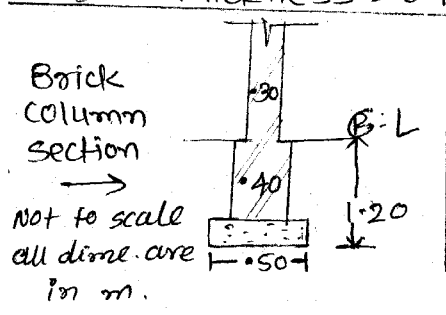 Brick
column
section
Not to scale
all dime. are
in m.
.30
.40
.50
G.L
1.20